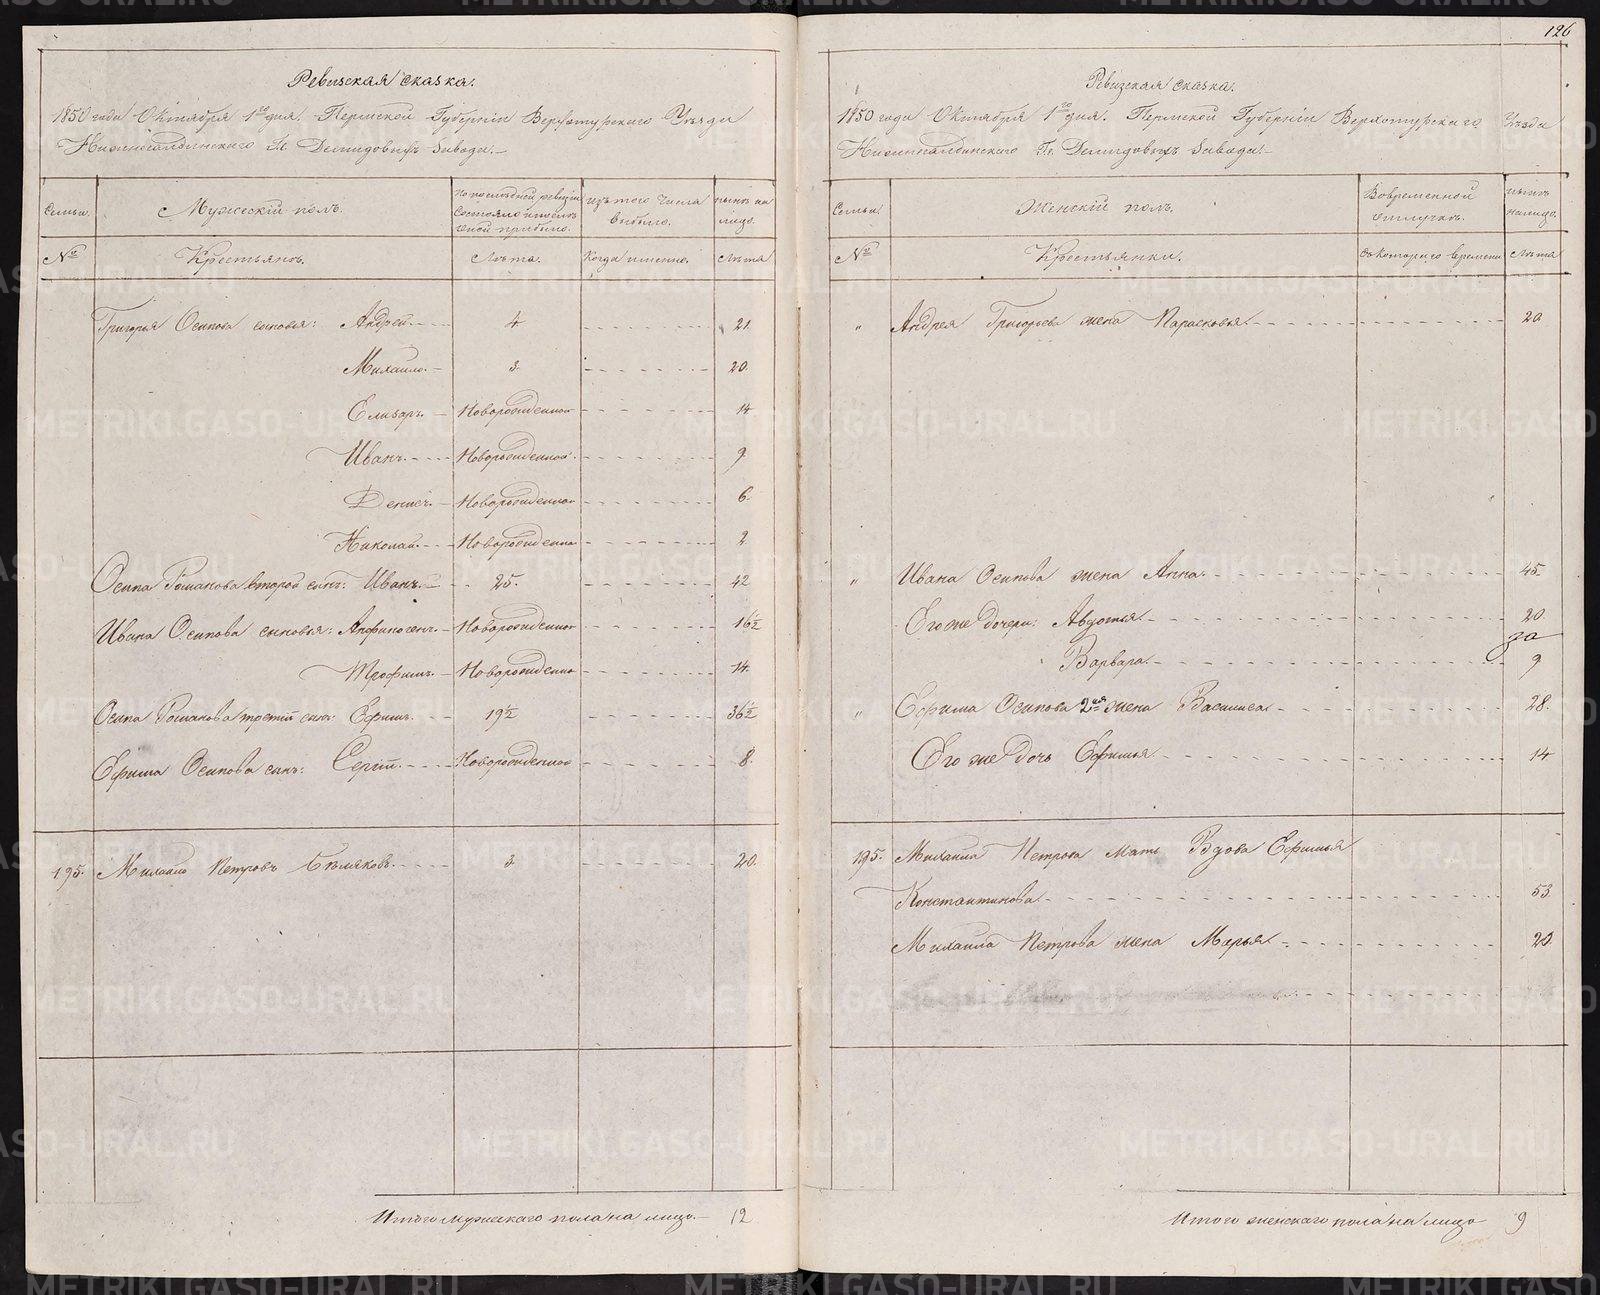 Ревизская сказка.
1850 года Октября 1го дня. Пермской Губерніи Верхотурского Уезда
Нижнесалдинского Гг. Демидовыхъ завода.
Семьи. Мужескій полъ. По последней ревизіи состояло и после оной прибыло. Изъ того числа выбыло. Ныне на лицо.
№ Крестьянъ. Лета. Когда именно. Лета
Григорья Осипова сыновья: Андрей 4 21.
Михаило. 3. 20.
Елизаръ. Новорожденной 14
Иванъ. Новорожденной 9
Денисъ. Новорожденной 6.
Николай. Новорожденно 2
Осипа Романова второй сынъ: Иванъ. 25. 42
Ивана Осипова сыновья: Анфиногенъ. Новорожденной 16 1/2
Трофимъ. Новорожденно 14.
Осипа Романова третій сынъ: Ефимъ. 19 1/2 36 1/2
Ефима Осипова сынъ: Сергій. Новорожденной 8.
195. Михаило Петровъ Беляковъ. 3 20.
Итого мужескаго пола на лицо. 12
126
Ревизская сказка.
1850 года Октября 1го дня. Пермской Губерніи Верхотурского Уезда
Нижнесалдинского Гг. Демидовыхъ завода.
Семьи. Женскій полъ. Во временной отлучке. Ныне на лицо.
№ Крестьянки. Съ которого времени Лета
" Андрея Григорьева жена Парасковья 20
" Ивана Осипова жена Анна. 45
Его же дочери: Авдотья 20
Варвара. 9
" Ефима Осипова 2ая жена Василиса 28.
Его же дочь Ефимья 14
195. Михаила Петрова мать Вдова Ефимья
Константинова 53
Михаила Петрова жена Марья 20.
Итого женскаго пола на лицо 9
METRIKI.GASO-URAL.RU